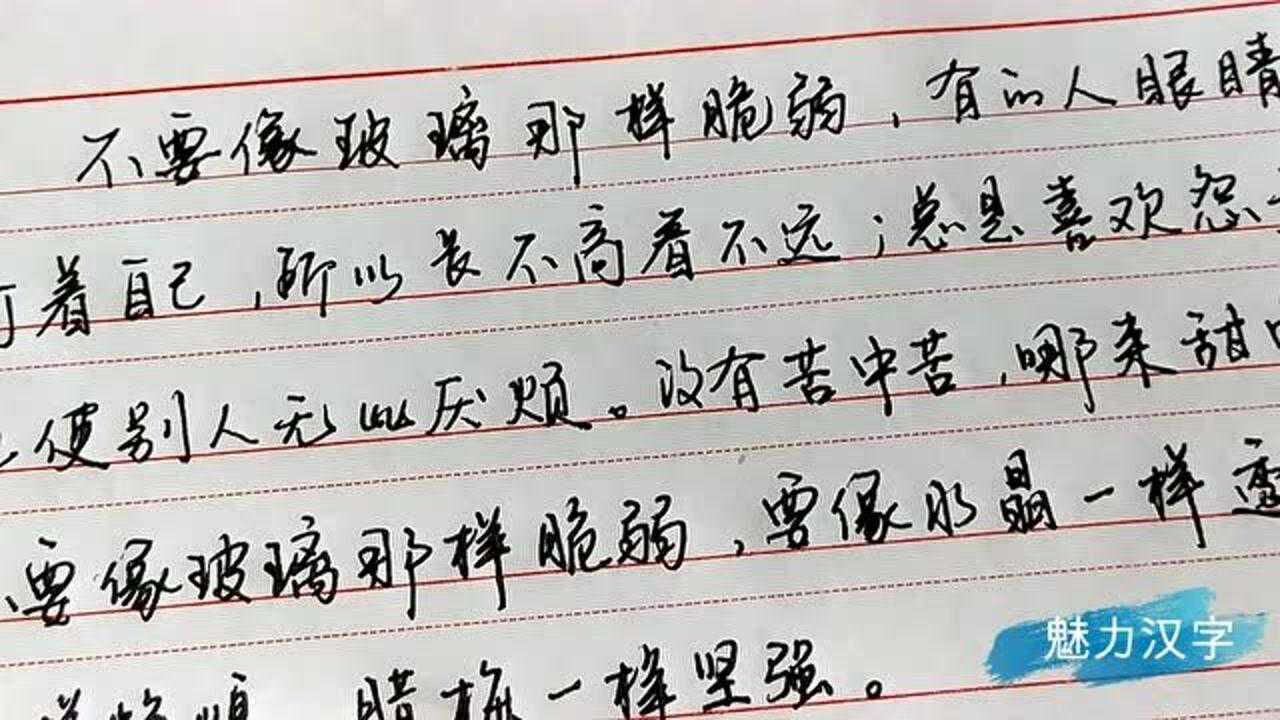 不要像玻璃那样脆弱，有的人眼睛
盯着自己，所以长不高看不远；总是喜欢怨
使别人无比厌烦。没有苦中苦，哪来甜
要像玻璃那样脆弱，要像水晶一样透
腊梅一样坚强。
魅力汉字